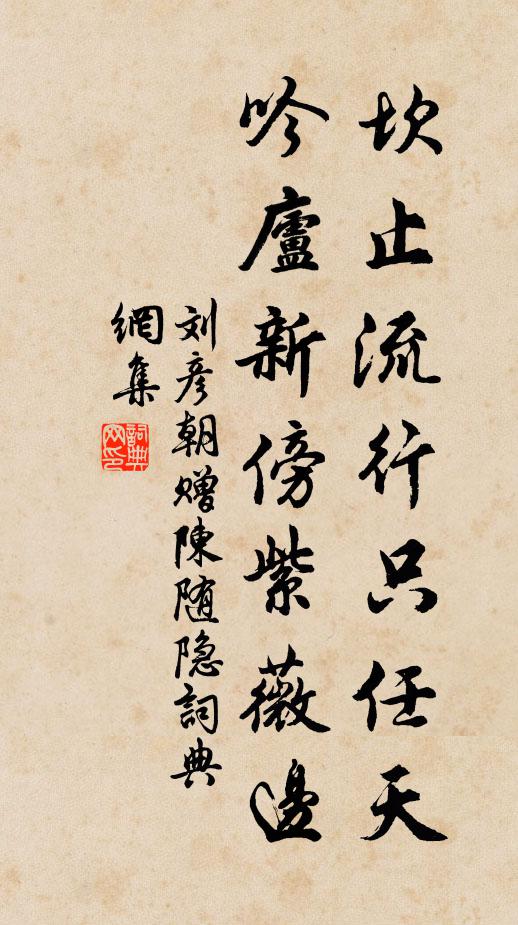 坎止流行只任天
吟廬新傍紫薇邊
刘彦朝赠陳随隐詞典
網集
詞典网印